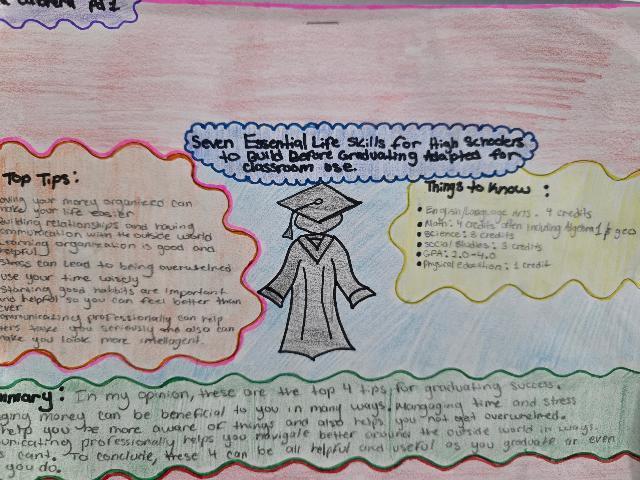 A1
Seven Essential Life Skills for High Schoolers
to Build Before Graduating Adapted for
classroom use.
Top Tips:
aving your money organized can
make your life easier
uilding relationships and having
communication with the outside world
Learning organization is good and
helpful
Stress can lead to being overwelmed
use your time wisely
Starting good habits are important
and helpful so you can feel better than
ever
communicating professionally can help
hers take you seriously and also can
make you look more intellagent.
Things to Know :
• English/Language Arts : 4 credits
• Math: 4 credits often including Algebra 1 & geo
• Science: 3 credits
• Social Studies: 3 credits
• GPA: 2.0-4.0
• Physical education: 1 credit
mmary: In my opinion, these are the top 4 tips for graduating success.
aging money can be beneficial to you in many ways. Mangaging time and stress
help you be more aware of things and also helps you not get overwelmed.
unicating professionally helps you navigate better around the outside world in ways
s cant. To conclude, these 4 can be all helpful and useful as you graduate or even
you do.